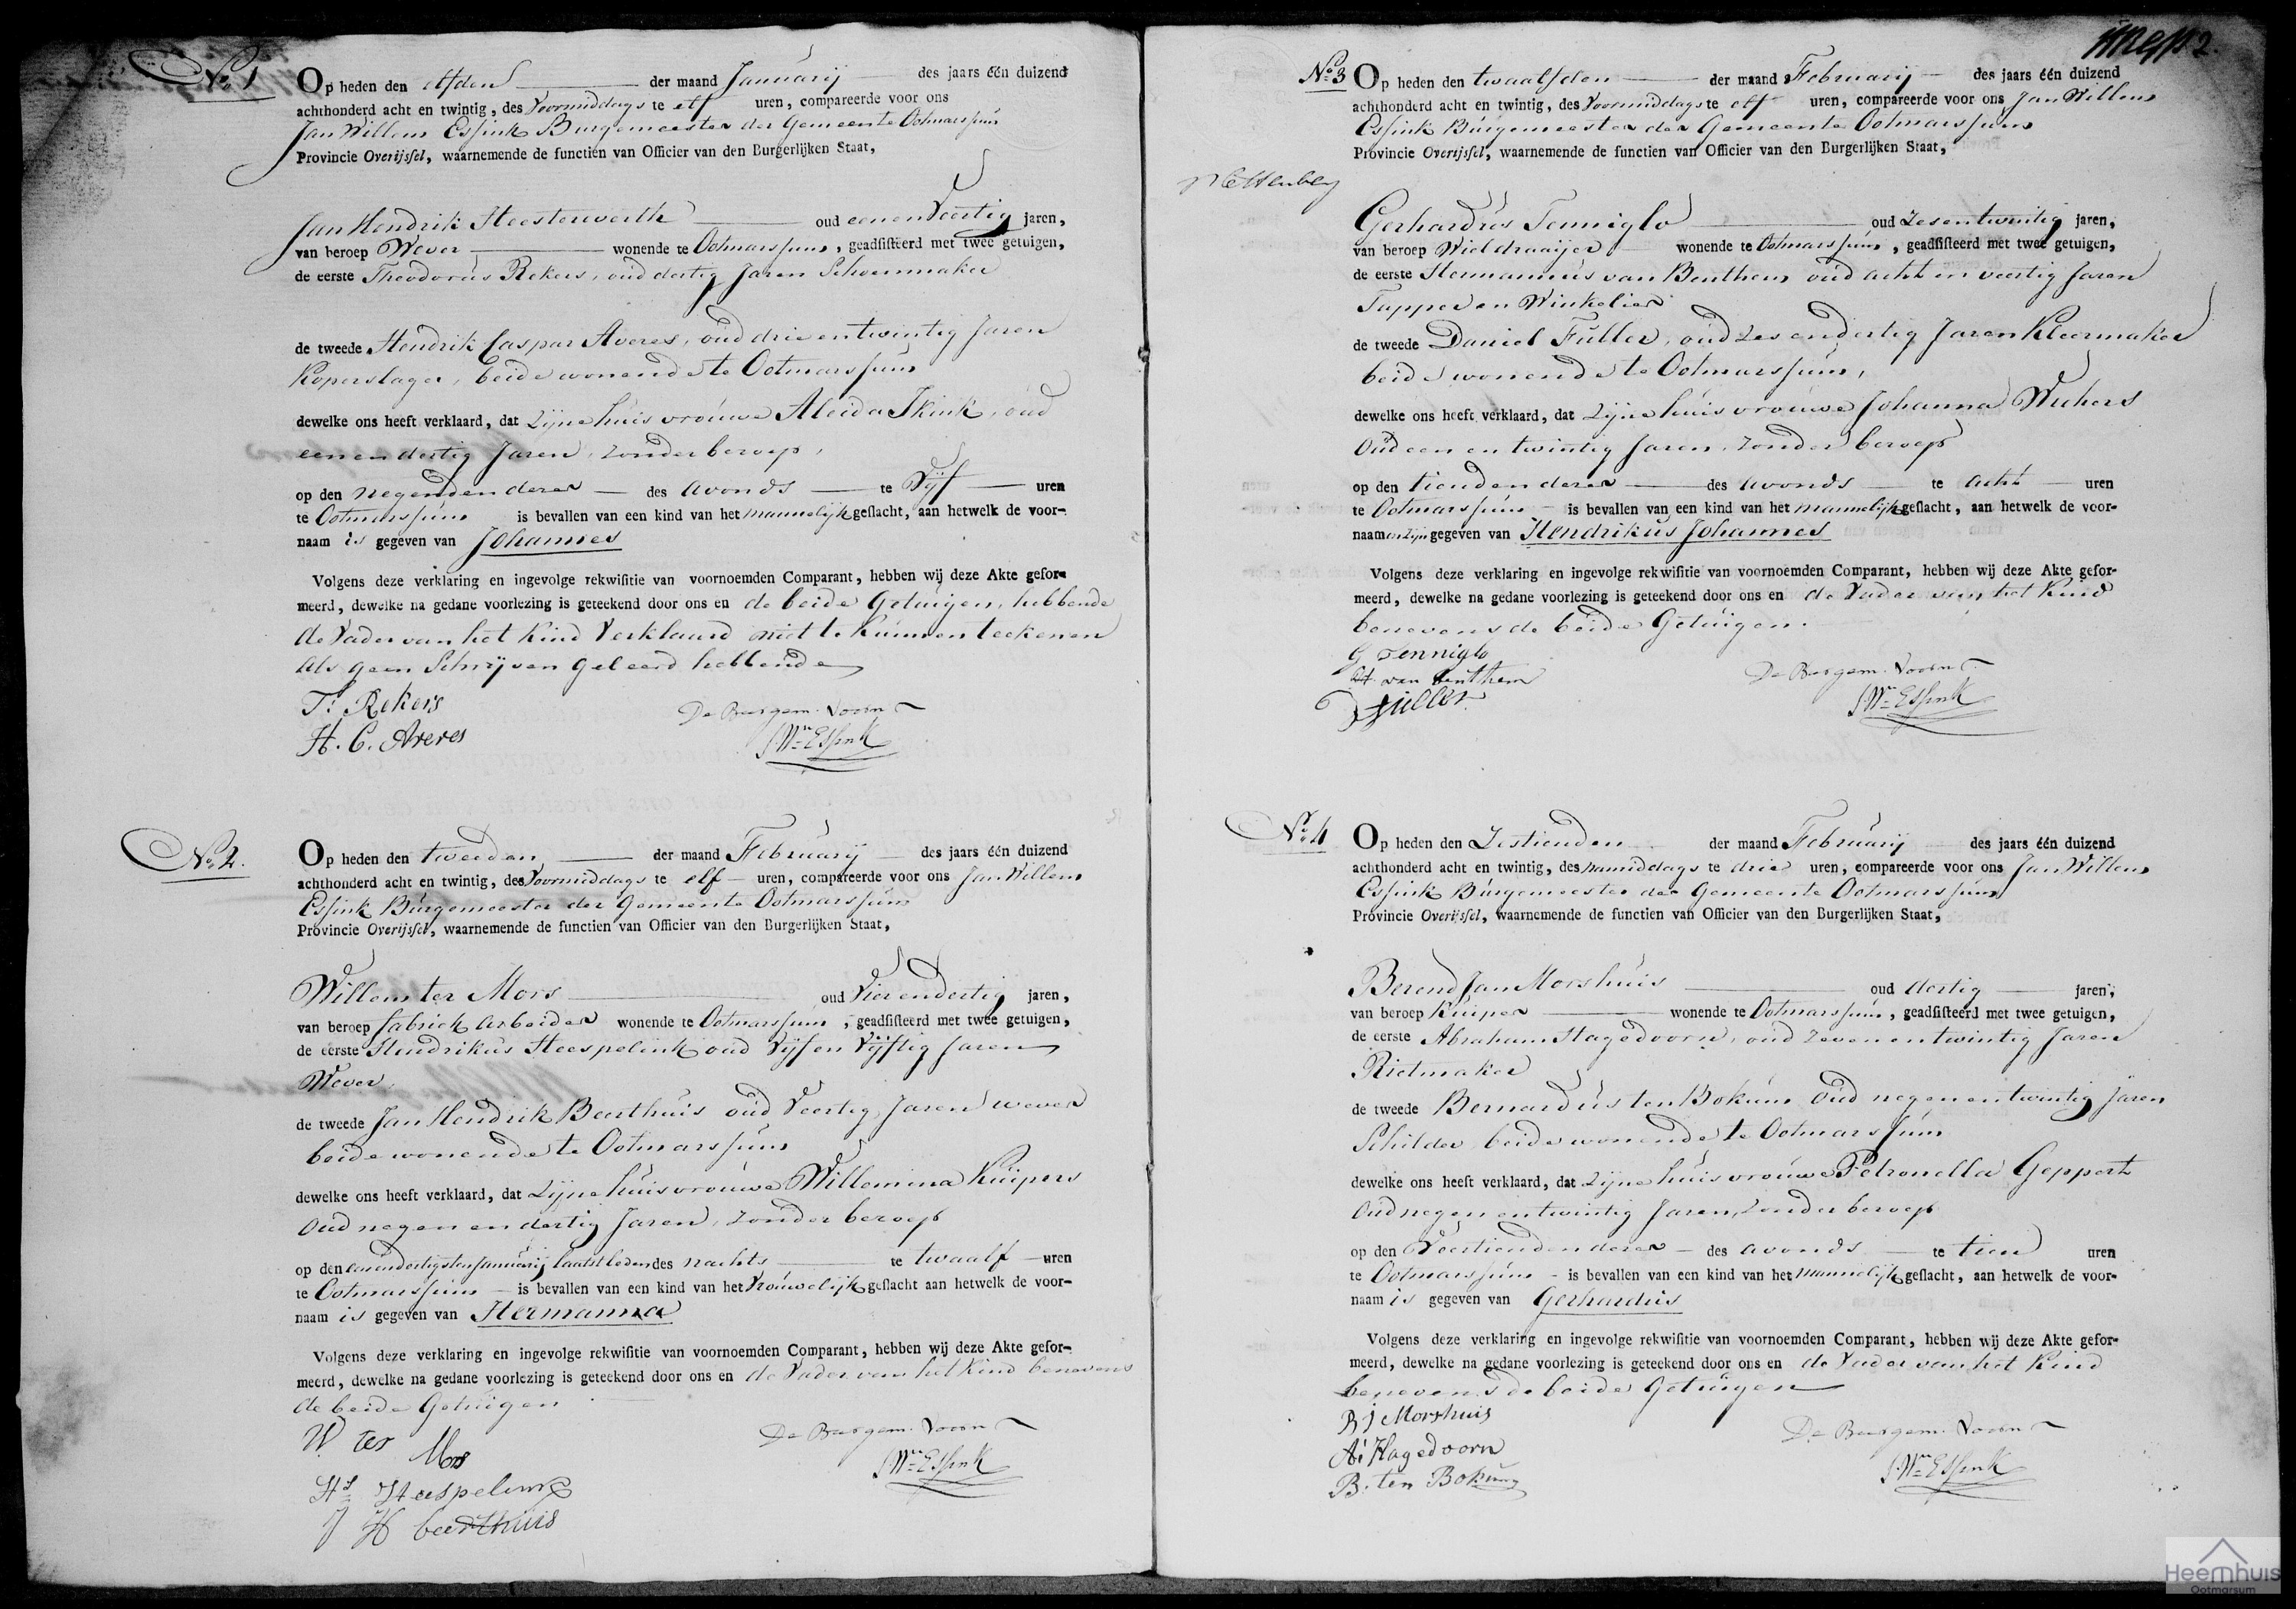 No. 1
Op heden den elfden der maand Januarij des jaars één duizend
achthonderd acht en twintig, des Voormiddags te elf uren, compareerde voor ons
Jan Willem Essink Burgemeester der Gemeente Ootmarssum
Provincie Overijssel, waarnemende de functien van Officier van den Burgerlijken Staat,
Jan Hendrik Heesterwerth oud een en Veertig jaren,
van beroep Wever wonende te Ootmarssum, geadsisteerd met twee getuigen,
de eerste Theodorus Rekers, oud dertig Jaren Schoenmaker
de tweede Hendrik Caspar Averes, oud drie en twintig Jaren
Koperslager, beide wonende te Ootmarssum
dewelke ons heeft verklaard, dat Zijne huisvrouwe Aleida Ikink, oud
een en dertig Jaren, zonder beroep,
op den negenden dezer des avonds te Vijf uren
te Ootmarssum is bevallen van een kind van het mannelijk geslacht, aan hetwelk de voor-
naam is gegeven van Johannes
Volgens deze verklaring en ingevolge rekwisitie van voornoemden Comparant, hebben wij deze Akte gefor-
meerd, dewelke na gedane voorlezing is geteekend door ons en de beide Getuigen, hebbende
de Vader van het Kind Verklaard niet te kunnen teekenen
als geen Schrijven geleerd hebbende
T. Rekers
H. C. Averes
De Burgem. Voorn
J Wm Essink
No. 2.
Op heden den tweeden der maand Februarij des jaars één duizend
achthonderd acht en twintig, des Voormiddags te elf uren, compareerde voor ons Jan Willem
Essink Burgemeester der Gemeente Ootmarssum
Provincie Overijssel, waarnemende de functien van Officier van den Burgerlijken Staat,
Willem ter Mors oud Vier en dertig jaren,
van beroep fabriek arbeider wonende te Ootmarssum, geadsisteerd met twee getuigen,
de eerste Hendrikus Heespelink oud Vijf en Vijftig Jaren
Wever
de tweede Jan Hendrik Beerthuis oud Veertig Jaren wever
beide wonende te Ootmarssum
dewelke ons heeft verklaard, dat Zijne huisvrouwe Willemina Kuipers
Oud negen en dertig Jaren, zonder beroep
op den een en dertigsten Januarij laatstleden des nachts te twaalf uren
te Ootmarssum is bevallen van een kind van het Vrouwelijk geslacht aan hetwelk de voor-
naam is gegeven van Hermanna
Volgens deze verklaring en ingevolge rekwisitie van voornoemden Comparant, hebben wij deze Akte gefor-
meerd, dewelke na gedane voorlezing is geteekend door ons en de Vader van het Kind benevens
de beide Getuigen
W ter Mors
Hs Heespelink
J H beerthuis
De Burgem. Voorn
J Wm Essink
2.
No. 3
Op heden den twaalfden der maand Februarij des jaars één duizend
achthonderd acht en twintig, des Voormiddags te elf uren, compareerde voor ons Jan Willem
Essink Burgemeester der Gemeente Ootmarssum
Provincie Overijssel, waarnemende de functien van Officier van den Burgerlijken Staat,
Gerhardus Tenniglo oud Zes en twintig jaren,
van beroep Wieldraaijer wonende te Ootmarssum, geadsisteerd met twee getuigen,
de eerste Hermannus van Benthem oud acht en veertig Jaren
Tapper en Winkelier
de tweede Daniel Fuller, oud Zes en dertig Jaren Kleermaker
beide wonende te Ootmarssum,
dewelke ons heeft verklaard, dat Zijne huisvrouwe Johanna
Oud een en twintig Jaren, zonder beroep
op den tienden dezer des avonds te acht uren
te Ootmarssum is bevallen van een kind van het mannelijk geslacht, aan hetwelk de voor-
naamen zijn gegeven van Hendrikus Johannes
Volgens deze verklaring en ingevolge rekwisitie van voornoemden Comparant, hebben wij deze Akte gefor-
meerd, dewelke na gedane voorlezing is geteekend door ons en de Vader van het Kind
benevens de beide Getuigen.
G Tenniglo
H. van Benthem
D fuller
De Burgem. Voorn
J Wm Essink
No. 4
Op heden den Zestienden der maand Februarij des jaars één duizend
achthonderd acht en twintig, des namiddags te drie uren, compareerde voor ons Jan Willem
Essink Burgemeester der Gemeente Ootmarssum
Provincie Overijssel, waarnemende de functien van Officier van den Burgerlijken Staat,
Berend Jan Morshuis oud dertig jaren,
van beroep Kuiper wonende te Ootmarssum, geadsisteerd met twee getuigen,
de eerste Abraham Hagedoorn, oud zeven en twintig Jaren
Rietmaker
de tweede Bernardus ten Bokum Oud negen en twintig Jaren
Schilder, beide wonende te Ootmarssum
dewelke ons heeft verklaard, dat Zijne huisvrouwe Petronella Geppert
Oud negen en twintig Jaren, zonder beroep
op den Veertienden dezer des avonds te tien uren
te Ootmarssum is bevallen van een kind van het mannelijk geslacht, aan hetwelk de voor-
naam is gegeven van Gerhardus
Volgens deze verklaring en ingevolge rekwisitie van voornoemden Comparant, hebben wij deze Akte gefor-
meerd, dewelke na gedane voorlezing is geteekend door ons en de Vader van het Kind
benevens de beide Getuigen
B J Morshuis
A. Hagedoorn
B. ten Bokum
De Burgem. Voorn
J. Wm Essink
Heemhuis
Ootmarsum